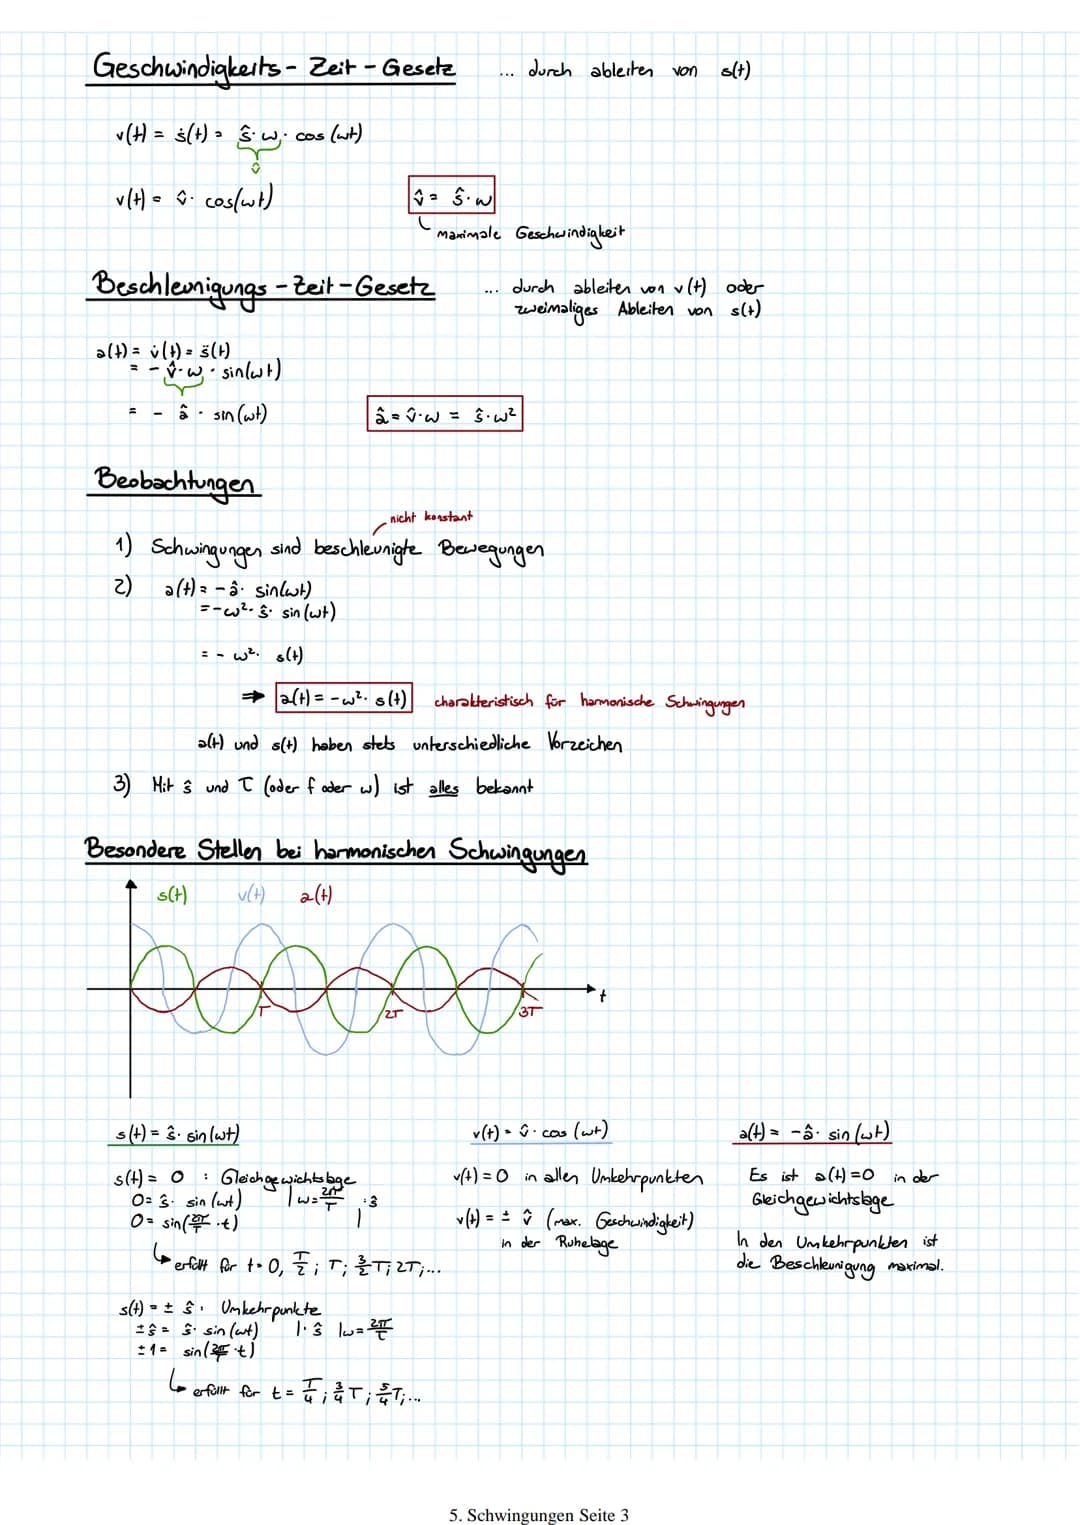 Geschwindigkeits - Zeit - Gesetz ... durch ableiten von s(t)
v(t) = ṡ(t) = ŝ · ω · cos (ωt)
v̂
v(t) = v̂ · cos(ωt)
v̂ = ŝ · ω
maximale Geschwindigkeit
Beschleunigungs - Zeit - Gesetz ... durch ableiten von v(t) oder
zweimaliges Ableiten von s(t)
a(t) = v̇(t) = s̈(t)
= - v̂ · ω · sin(ωt)
= - â · sin(ωt)
â = v̂ · ω = ŝ · ω²
Beobachtungen
nicht konstant
1) Schwingungen sind beschleunigte Bewegungen
2) a(t) = - â · sin(ωt)
= - ω² · ŝ · sin(ωt)
= - ω² · s(t)
⇒ a(t) = - ω² · s(t) charakteristisch für harmonische Schwingungen
a(t) und s(t) haben stets unterschiedliche Vorzeichen
3) Mit ŝ und T (oder f oder ω) ist alles bekannt
Besondere Stellen bei harmonischen Schwingungen
s(t) v(t) a(t)
t
T 2T 3T
s(t) = ŝ · sin(ωt)
s(t) = 0 : Gleichgewichtslage
0 = ŝ · sin(ωt) | ω = 2π/T :ŝ
0 = sin(2π/T · t) |
↳ erfüllt für t = 0, T/2 ; T ; 3/2 T ; 2T ; ...
s(t) = ± ŝ : Umkehrpunkte
± ŝ = ŝ · sin(ωt) | · ŝ | ω = 2π/T
± 1 = sin(2π/T · t)
↳ erfüllt für t = T/4 ; 3/4 T ; 5/4 T ; ...
v(t) = v̂ · cos(ωt)
v(t) = 0 in allen Umkehrpunkten
v(t) = ± v̂ (max. Geschwindigkeit)
in der Ruhelage
a(t) = - â · sin(ωt)
Es ist a(t) = 0 in der
Gleichgewichtslage
In den Umkehrpunkten ist
die Beschleunigung maximal.
5. Schwingungen Seite 3